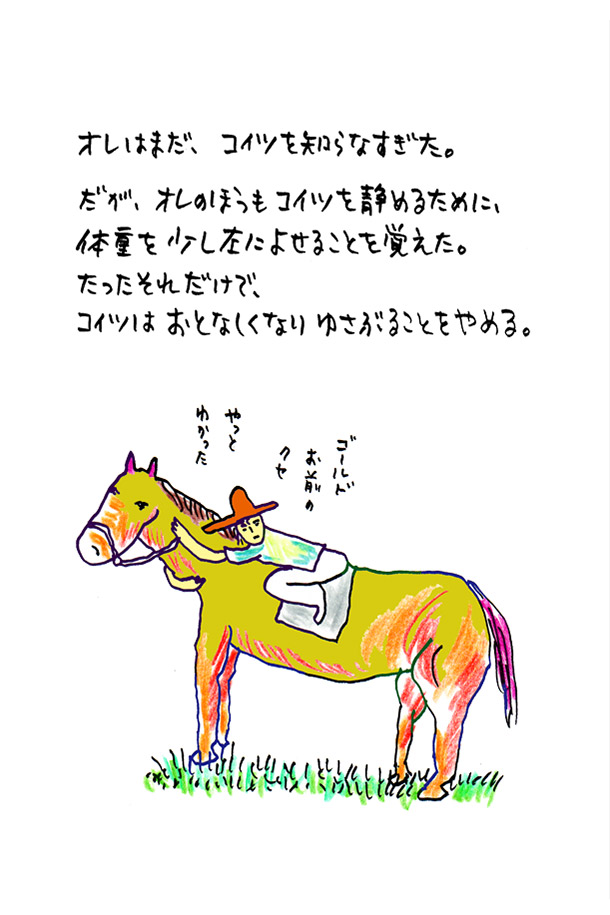 オレはまだ、コイツを知らなすぎた。
だが、オレのほうもコイツを静めるために、
体重を少し左によせることを覚えた。
たったそれだけで、
コイツは おとなしくなり ゆさぶることをやめる。
ゴールド
お前の
クセ
やっと
わかった